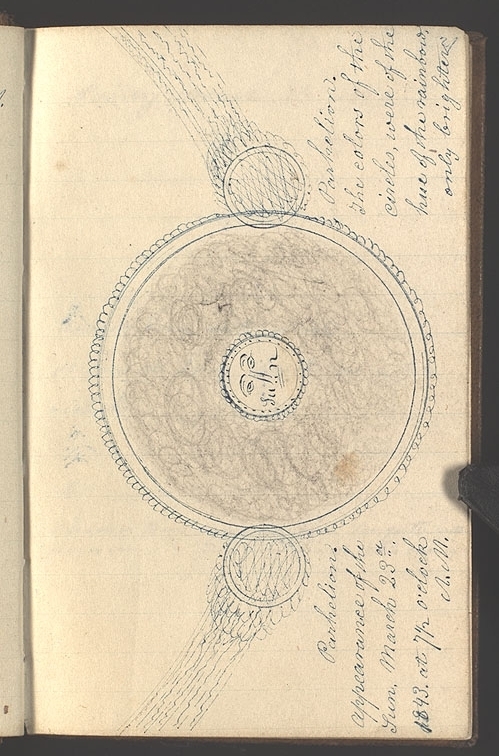 Sun
Parhelion.
appearance of the
Sun, March 23d
1843. at 7½ o'clock
A.M.
Parhelion.
The colors of the
circles, were of the
hue of the rainbow,
only brighter